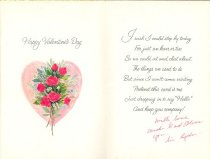 Happy Valentine's Day
I wish I could stop by today
For just an hour or two
So we could sit and chat about
The things we used to do
But since I won't come visiting
Pretend this card is me
Just dropping in to say "Hello"
And keep you company!
With Love
and God Bless